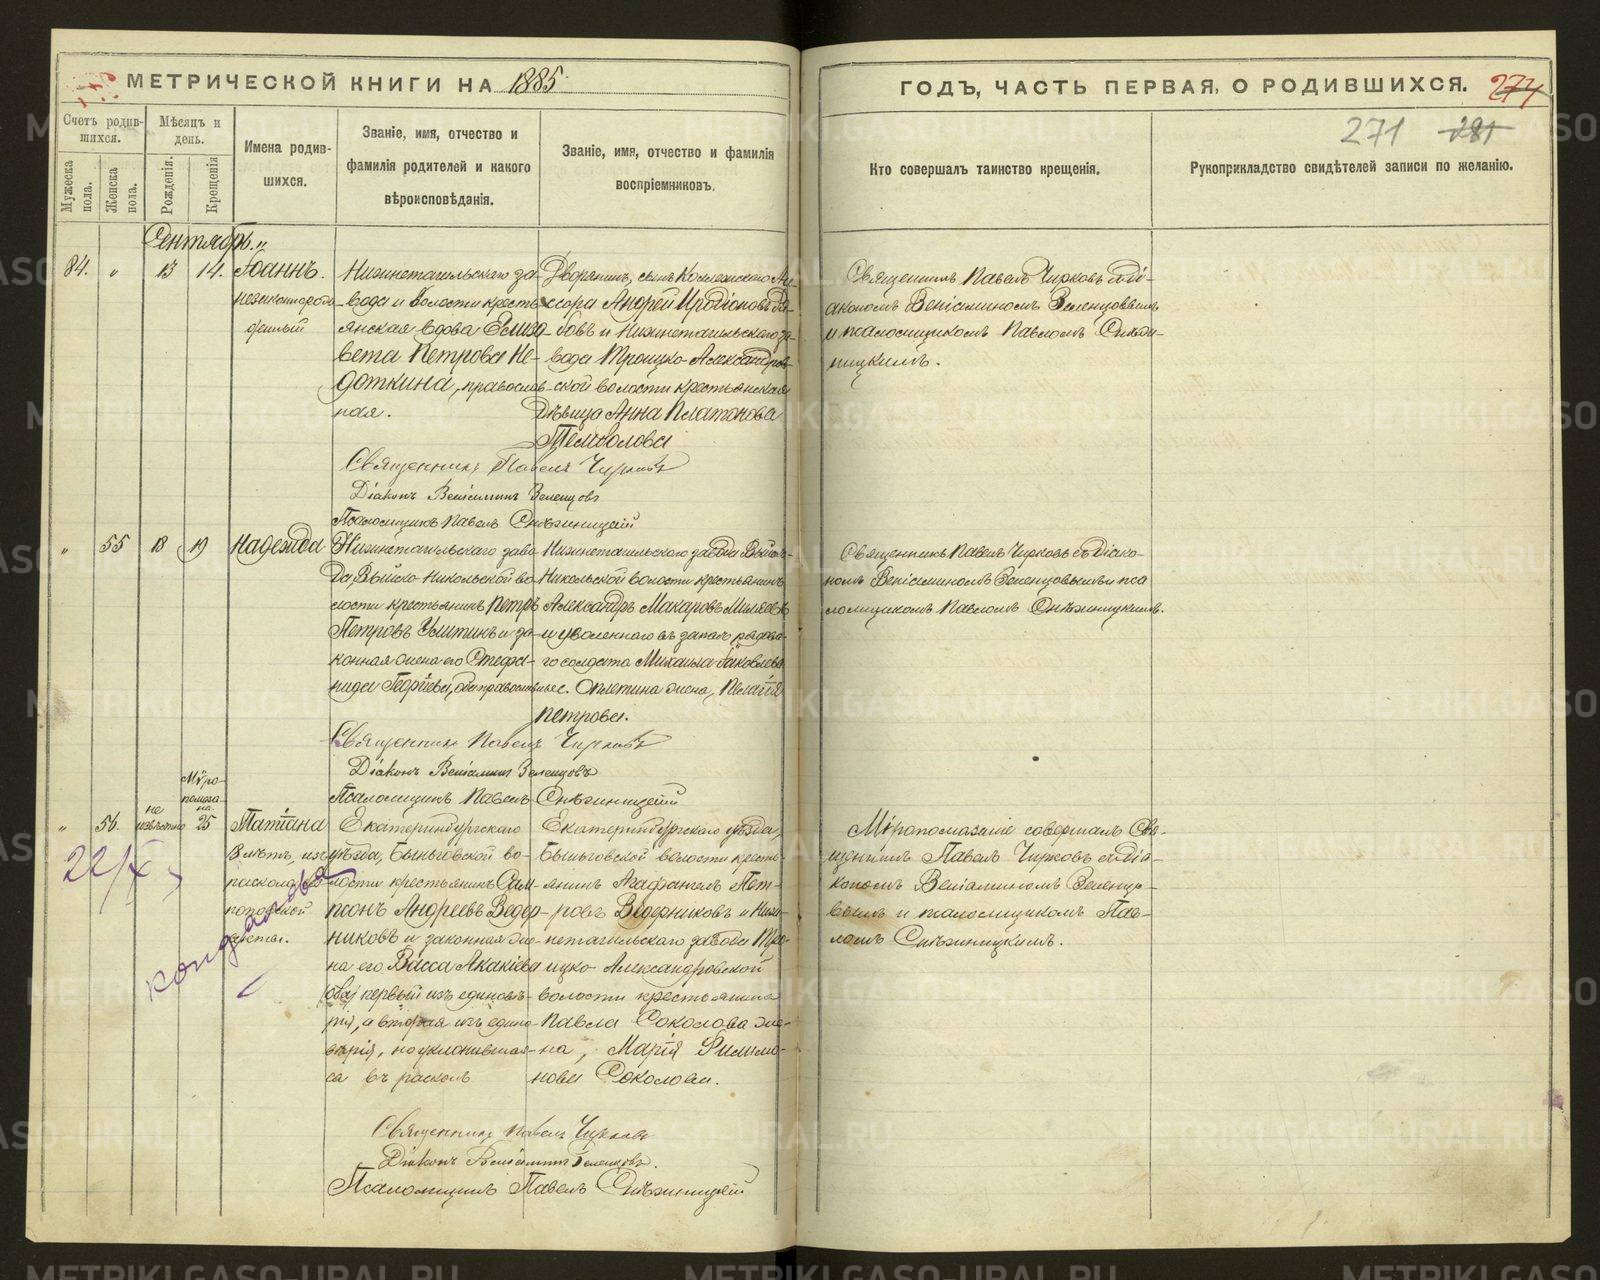 МЕТРИЧЕСКОЙ КНИГИ НА 1885
ГОДЪ, ЧАСТЬ ПЕРВАЯ, О РОДИВШИХСЯ. 274
271 281
Счетъ родив-
шихся.
Мужеска
пола.
Женска
пола.
Мѣсяцъ и
день.
Рожденія.
Крещенія
Имена родив-
шихся.
Званіе, имя, отчество и
фамилія родителей и какого
вѣроисповѣданія.
Званіе, имя, отчество и фамилія
воспріемниковъ.
Кто совершалъ таинство крещенія.
Рукоприкладство свидѣтелей записи по желанію.
Сентябрь.
84. " 13 14. Іоаннъ.
незаконнорож-
денный
Нижнетагильскаго за-
вода и волости кресть-
янская вдова Елиза-
вета Петрова Не-
доткина, православ-
ная.
Дворянинъ, сынъ
Андрей
и Нижнетагильскаго за-
вода Троицко-Александров-
ской волости крестьянская
дѣвица Анна Платонова
Священникъ Павелъ Чирковъ съ ді-
акономъ Веніаминомъ Зеленцовымъ
и псаломщикомъ Павломъ Снѣжи-
ницкимъ.
Священникъ Павелъ Чирковъ
Діаконъ Веніаминъ Зеленцовъ
Псаломщикъ Павелъ Снѣжницкій
" 55 18 19 Надежда
Нижнетагильскаго заво-
да, Выйско-Никольской во-
лости крестьянинъ Петръ
Петровъ Улитинъ и за-
конная жена его Стефа-
нида Георгіева, оба православные.
Нижнетагильскаго завода Выйско-
Никольской волости крестьянинъ
Александръ Макаровъ
и уволеннаго въ запасъ рядова-
го солдата Михаила Яковлева
жена, Пелагія
Петрова.
Священникъ Павелъ Чирковъ съ діако-
номъ Веніаминомъ Зеленцовымъ и пса-
ломщикомъ Павломъ Снѣжницкимъ.
Священникъ Павелъ Чирковъ
Діаконъ Веніаминъ Зеленцовъ
Псаломщикъ Павелъ Снѣжницкій
" 56.
не
извѣстно
Мѵро-
помаза-
на.
25
Татіана
8 лѣтъ, изъ
раскола
поповской
секты.
22/X
Екатеринбургскаго
уѣзда, Быньговской во-
лости крестьянинъ Сам-
псонъ Андреевъ Ведер-
никовъ и законная же-
на его Васса Акакіева
(оба) первый изъ единовѣ-
рія, а вторая изъ едино-
вѣрія, но уклонившая-
ся въ расколъ
Екатеринбургскаго уѣзда,
Быньговской волости кресть-
янинъ Агафангелъ Пет-
ровъ Ведерниковъ и Ниж-
нетагильскаго завода Тро-
ицко-Александровской
волости крестьянина
Павла Соколова же-
на, Марія Филимо-
нова Соколова.
Мѵропомазаніе совершалъ Свя-
щенникъ Павелъ Чирковъ съ діа-
кономъ Веніаминомъ Зеленцо-
вымъ и псаломщикомъ Пав-
ломъ Снѣжницкимъ.
Священникъ Павелъ Чирковъ
Діаконъ Веніаминъ Зеленцовъ.
Псаломщикъ Павелъ Снѣжницкій
METRIKI.GASO-URAL.RU